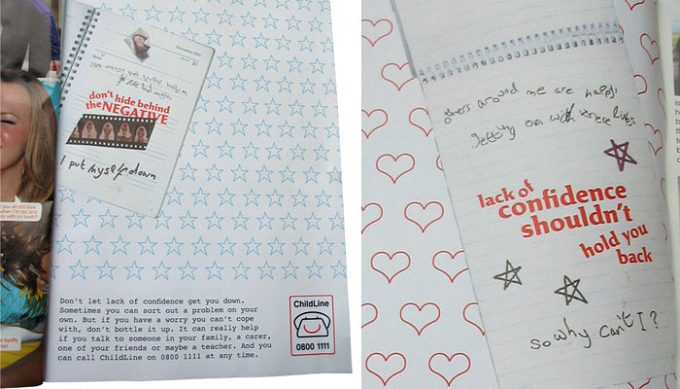 don't hide behind
the NEGATIVE
I put myself down
Don't let lack of confidence get you down.
Sometimes you can sort out a problem on your
own. But if you have a worry you can't cope
with, don't bottle it up. It can really help
if you talk to someone in your family, a carer,
one of your friends or maybe a teacher. And you
can call ChildLine on 0800 1111 at any time.
ChildLine
0800 1111
others around me are happy
getting on with there lives
lack of
confidence
shouldn't
hold you
back
so why can't I?